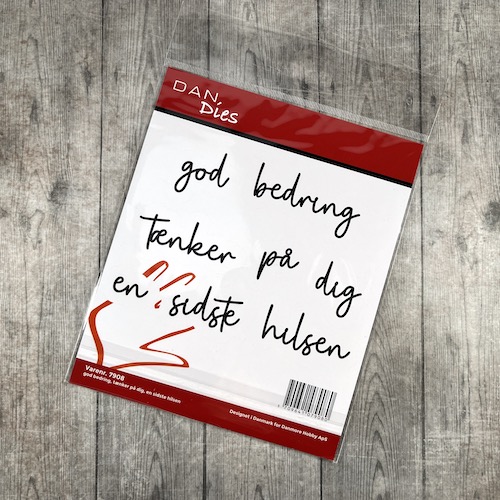 DAN
Dies
god bedring
tænker på dig
en sidste hilsen
Varenr. 7908
god bedring, tænker på dig, en sidste hilsen
Designet i Danmark for Danmore Hobby ApS